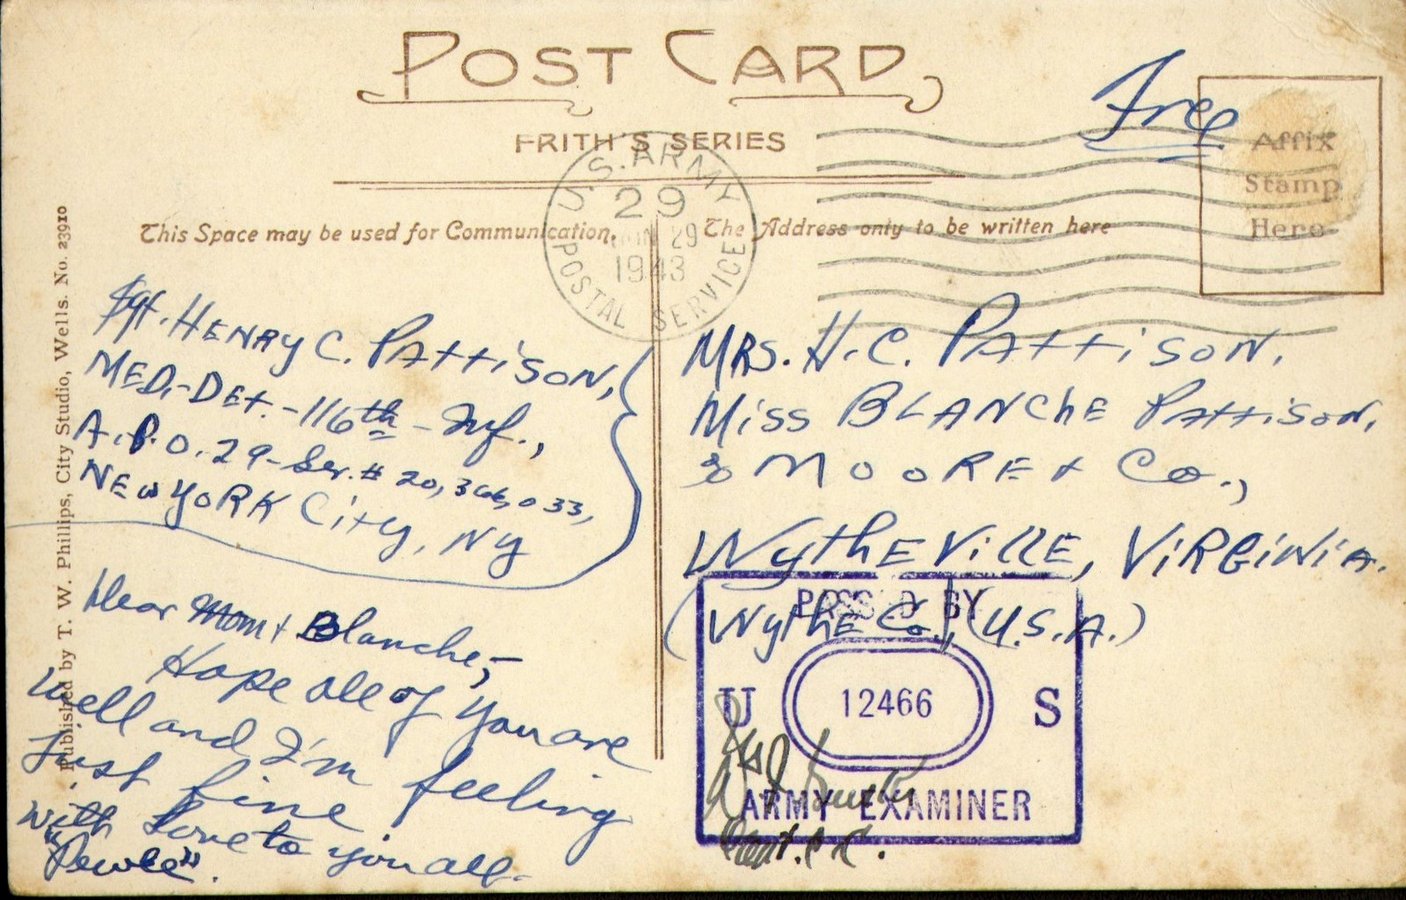 POST CARD
FRITH'S SERIES
Free
Affix
Stamp
Here
U.S. ARMY
29
JUN 29
1943
POSTAL SERVICE
This Space may be used for Communication.
The Address only to be written here
Published by T. W. Phillips, City Studio, Wells. No. 23910
Sgt. HENRY C. PAttiSON,
MED.-DEt.-116th-Inf.,
A.P.O. 29-Ser.# 20,366,033,
NEW YORK City, NY
Dear Mom + Blanche,-
Hope all of you are
well and I'm feeling
just fine
with Love to you all.
MRS. H.C. PAttiSON,
Miss BLANChE PAttiSON,
% MOORE + Co.,
WythEVillE, ViRGiNiA.
(WythE Co.), (U.S.A.)
PASSED BY
U 12466 S
ARMY EXAMINER